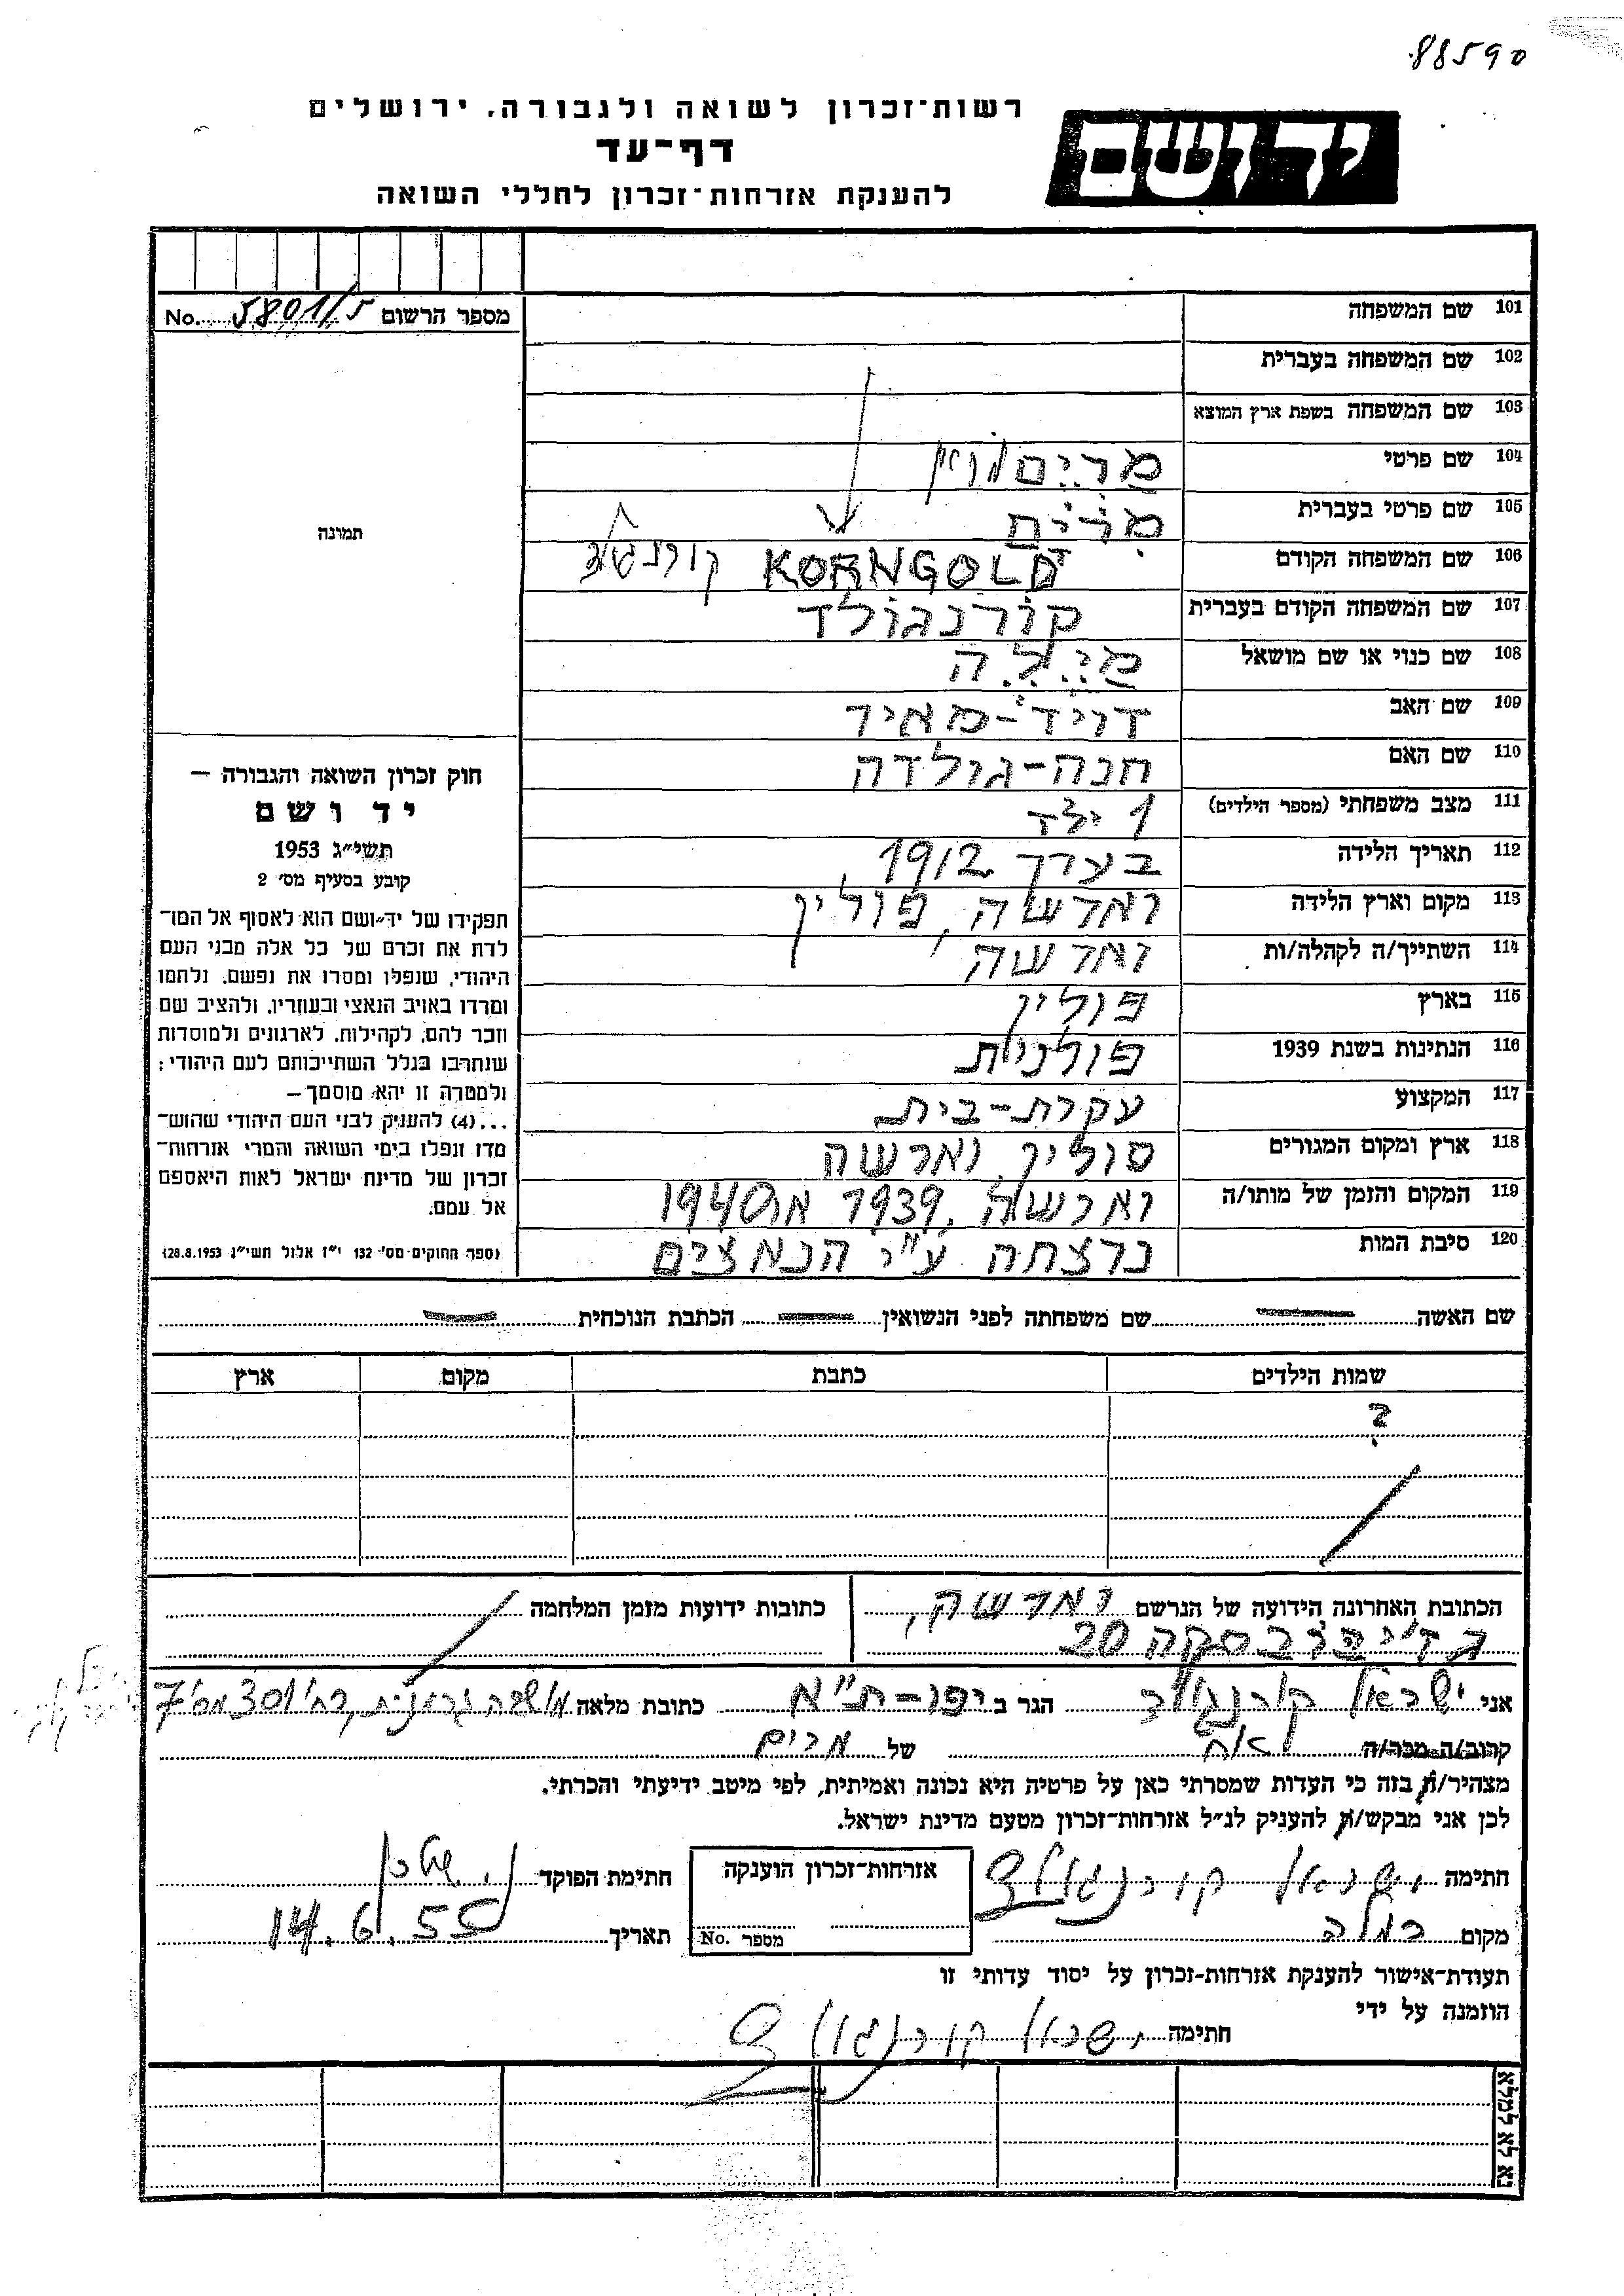 88590
רשות־זכרון לשואה ולגבורה, ירושלים
דף־עד
להענקת אזרחות־זכרון לחללי השואה
יד ושם
מספר הרשום No. 5801/5
101 שם המשפחה
102 שם המשפחה בעברית
103 שם המשפחה בשפת ארץ המוצא
104 שם פרטי מרים
105 שם פרטי בעברית מרים
106 שם המשפחה הקודם KORNGOLD קורנגולד
107 שם המשפחה הקודם בעברית קורנגולד
108 שם כנוי או שם מושאל מילה
109 שם האב דויד-מאיר
110 שם האם חנה-גולדה
111 מצב משפחתי (מספר הילדים) 1 ילד
112 תאריך הלידה בערך 1912
113 מקום וארץ הלידה וארשה, פולין
114 השתייך/ה לקהלה/ות וארשה
115 בארץ פולין
116 הנתינות בשנת 1939 פולנית
117 המקצוע עקרת-בית
118 ארץ ומקום המגורים פולין וארשה
119 המקום והזמן של מותו/ה וארשה, 1939 או 1940
120 סיבת המות נרצחה ע"י הנאצים
תמונה
חוק זכרון השואה והגבורה —
יד ושם
תשי״ג 1953
קובע בסעיף מס׳ 2
תפקידו של יד־ושם הוא לאסוף אל המו־
לדת את זכרם של כל אלה מבני העם
היהודי, שנפלו ומסרו את נפשם, נלחמו
ומרדו באויב הנאצי ובעוזריו, ולהציב שם
וזכר להם, לקהילות, לארגונים ולמוסדות
שנחרבו בגלל השתייכותם לעם היהודי;
ולמטרה זו יהא מוסמך—
...(4) להעניק לבני העם היהודי שהוש־
מדו ונפלו בימי השואה והמרי אזרחות־
זכרון של מדינת ישראל לאות היאספם
אל עמם.
(ספר החוקים מס׳ 132 י״ז אלול תשי״ג 28.8.1953)
שם האשה שם משפחתה לפני הנשואין הכתבת הנוכחית
שמות הילדים כתבת מקום ארץ
?
הכתובת האחרונה הידועה של הנרשם וארשה,
20
כתובות ידועות מזמן המלחמה
אני ישראל קורנגולד הגר ב יפו-ת"א כתובת מלאה
קרוב/ה מכר/ה אח של מרים
מצהיר/ה בזה כי העדות שמסרתי כאן על פרטיה היא נכונה ואמיתית, לפי מיטב ידיעתי והכרתי.
לכן אני מבקש/ת להעניק לנ״ל אזרחות־זכרון מטעם מדינת ישראל.
חתימה ישראל קורנגולד
אזרחות־זכרון הוענקה
מספר No.
חתימת הפוקד
מקום רמלה
תאריך 14.6.55
תעודת־אישור להענקת אזרחות־זכרון על יסוד עדותי זו
הוזמנה על ידי
חתימה ישראל קורנגולד
נא לא למלא